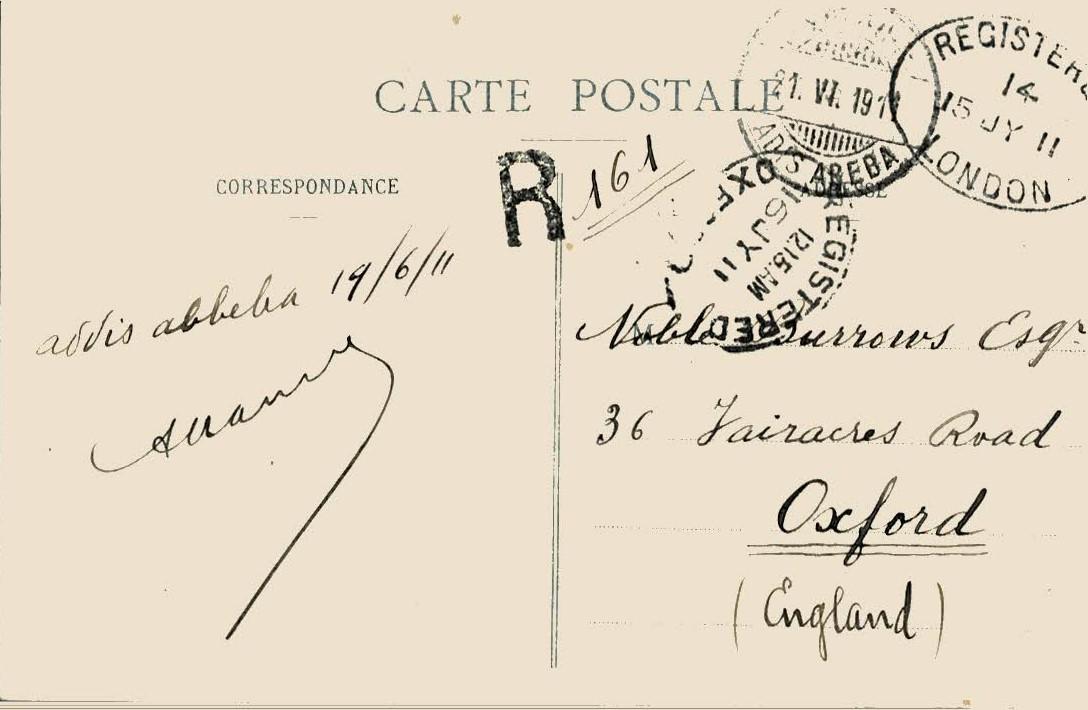 CARTE POSTALE
CORRESPONDANCE
R 161
21. VI. 1911
ADIS ABEBA
REGISTERED
14
15 JY 11
LONDON
REGISTERED
12.15 AM
16 JY 11
addis abbeba 19/6/11
Noble Burrows Esqr
36 Fairacres Road
Oxford
(England)